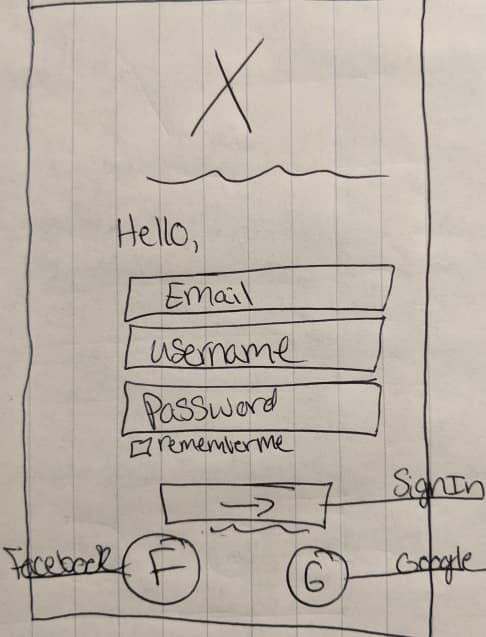 X
Hello,
Email
username
Password
rememberme
→ SignIn
Facebook F G Google